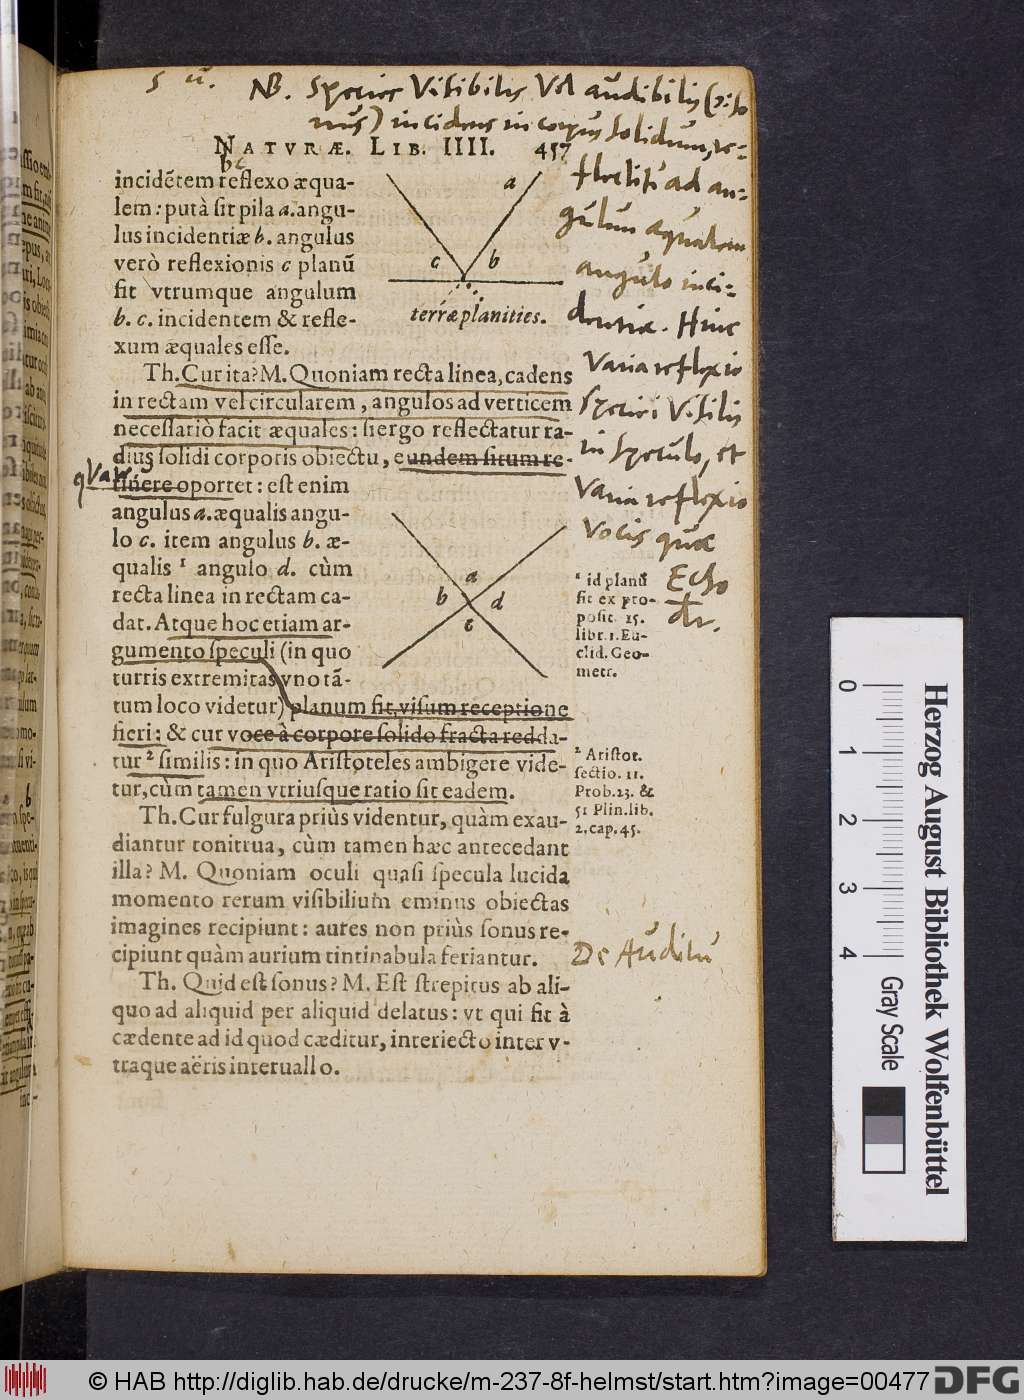 NB. Species Visibilis Vel audibilis (
incidens in corpus solidum, re-
NATVRÆ. LIB. IIII. 457
flectit ad an-
gulum æqualem
angulo inci-
dentiæ. Hinc
Varia reflexio
speciei Visilis
in speculo, et
Varia reflexio
Vocis quæ
Echo
incidẽtem reflexo æqua-
lem: putà sit pila a. angu-
lus incidentiæ b. angulus
verò reflexionis c planũ
fit vtrumque angulum
b. c. incidentem & refle-
xum æquales esse.
a
c b
terræ planities.
Th. Cur ita? M. Quoniam recta linea, cadens
in rectam vel circularem, angulos ad verticem
necessariò facit æquales: si ergo reflectatur ra-
dius solidi corporis obiectu, eundem situm re-
tinere oportet: est enim
angulus a. æqualis angu-
lo c. item angulus b. æ-
qualis ¹ angulo d. cùm
recta linea in rectam ca-
dat. Atque hoc etiam ar-
gumento speculi (in quo
turris extremitas vno tã-
tum loco videtur) planum fit, visum receptione
fieri: & cur voce à corpore solido fracta redda-
tur ² similis: in quo Aristoteles ambigere vide-
tur, cùm tamen vtriusque ratio sit eadem.
a
b d
c
¹ id planũ
fit ex pro-
posit. 15.
libr. 1. Eu-
clid. Geo-
metr.
² Aristot.
sectio. 11.
Prob. 23. &
51 Plin. lib.
2. cap. 45.
Th. Cur fulgura priùs videntur, quàm exau-
diantur tonitrua, cùm tamen hæc antecedant
illa? M. Quoniam oculi quasi specula lucida
momento rerum visibilium eminus obiectas
imagines recipiunt: aures non priùs sonus re-
cipiunt quàm aurium tintinabula feriantur.
De Auditu
Th. Quid est sonus? M. Est strepitus ab ali-
quo ad aliquid per aliquid delatus: vt qui fit à
cædente ad id quod cæditur, interiecto inter v-
traque aëris interuallo.
0 1 2 3 4
Gray Scale
Herzog August Bibliothek Wolfenbüttel
© HAB http://diglib.hab.de/drucke/m-237-8f-helmst/start.htm?image=00477
DFG